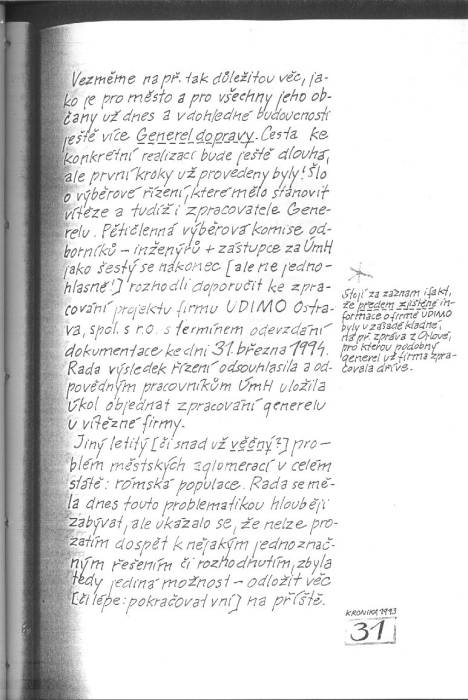 Vezměme např. tak důležitou věc, ja-
ko je pro město a pro všechny jeho ob-
čany už dnes a v dohledné budoucnosti
ještě více Generel dopravy. Cesta ke
konkrétní realizaci bude ještě dlouhá,
ale první kroky už provedeny byly! Šlo
o výběrové řízení, které mělo stanovit
vítěze a tudíž i zpracovatele Gene-
relu. Pětičlenná výběrová komise od-
borníků – inženýrů + zástupce za ÚmH
jako šestý se nakonec [ale ne jedno-
hlasně!] rozhodli doporučit ke zpra-
cování projektu firmu UDIMO Ostra-
va, spol. s r.o. s termínem odevzdání
dokumentace ke dni 31. března 1994.
Rada výsledek řízení odsouhlasila a od-
povědným pracovníkům ÚmH uložila
úkol objednat zpracování generelu
u vítězné firmy.
Jiný letitý [či snad už věčný?] pro-
blém městských aglomerací v celém
státě: rómská populace. Rada se mě-
la dnes touto problematikou hlouběji
zabývat, ale ukázalo se, že nelze pro-
zatím dospět k nějakým jednoznač-
ným řešením či rozhodnutím, zbyla
tedy jediná možnost – odložit věc
[či lépe: pokračovat v ní] na příště.
Stojí za záznam i fakt,
že předem zjištěné in-
formace o firmě UDIMO
byly v zásadě kladné,
na př. zpráva z Orlové,
pro kterou podobný
generel už firma zpra-
covala dříve.
KRONIKA 1993
31